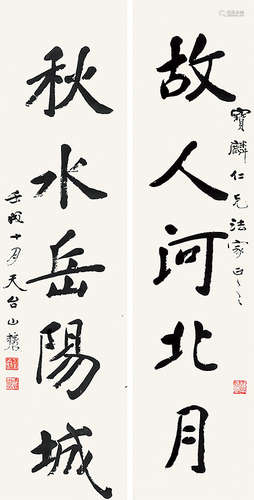 寶麟仁兄法家正之
故人河北月
秋水岳陽城
壬戌十月天台山農